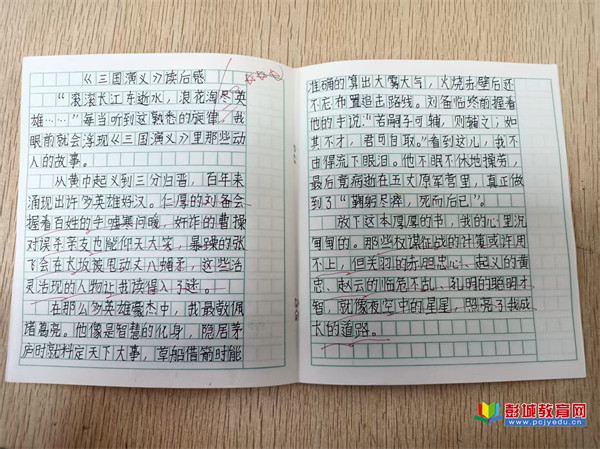 《三国演义》读后感
“滚滚长江东逝水，浪花淘尽英
雄……”每当听到这熟悉的旋律，我
眼前就会浮现《三国演义》里那些动
人的故事。
从黄巾起义到三分归晋，百年来
涌现出许多英雄好汉。仁厚的刘备会
握着百姓的手嘘寒问暖，奸诈的曹操
对误杀至友也能仰天大笑，暴躁的张
飞会在大坂坡甩动丈八蛇矛，这些活
灵活现的人物让我读得入了迷。
在那么多英雄豪杰中，我最敬佩
诸葛亮。他像是智慧的化身，隐居茅
庐时就料定天下大事，草船借箭时能
准确的算出大雾天气，火烧赤壁后还
不忘布置追击路线。刘备临终前握着
他的手说：“若嗣子可辅，则辅之；如
其不才，君可自取。”看到这儿，我不
由得流下眼泪。他不眠不休地操劳，
最后竟病逝在五丈原军营里，真正做
到了“鞠躬尽瘁，死而后已”。
放下这本厚厚的书，我的心里沉
甸甸的。那些权谋征战的计策或许用
不上，但关羽的赤胆忠心、起义的黄
忠、赵云的临危不乱、孔明的聪明才
智，就像夜空中的星星，照亮了我成
长的道路。
彭城教育网
www.pcjyedu.cn